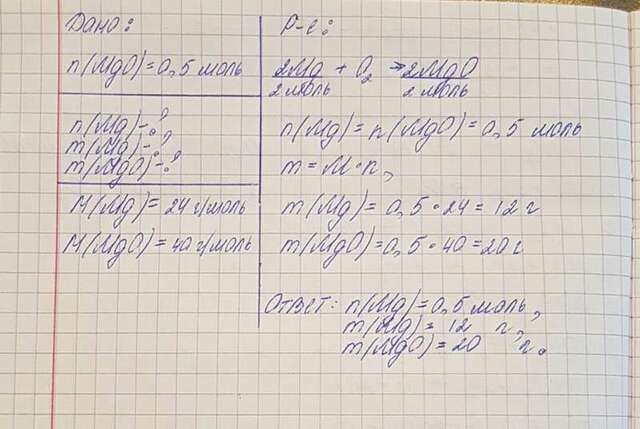 Дано:
n(MgO)=0,5 моль
n(Mg)-?
m(Mg)-?
m(MgO)-?
M(Mg)=24 г/моль
M(MgO)=40 г/моль
Р-е:
2Mg + O₂ → 2MgO
2 моль 2 моль
n(Mg)=n(MgO)=0,5 моль
m=M·n,
m(Mg)=0,5·24=12 г
m(MgO)=0,5·40=20 г
Ответ: n(Mg)=0,5 моль,
m(Mg)=12 г,
m(MgO)=20 г.